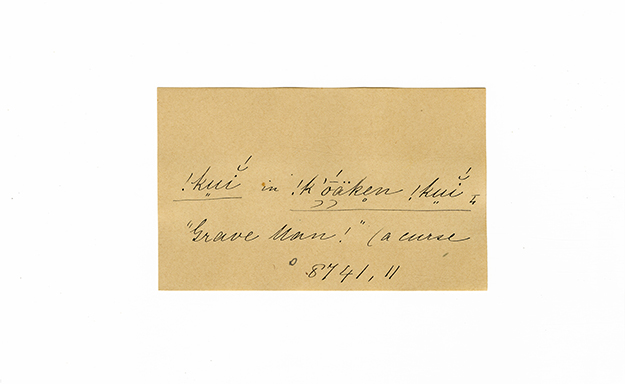 !kuḯ̯ in !kṓäken !kuḯ̯
"Grave Man!" (a curse
8741, 11